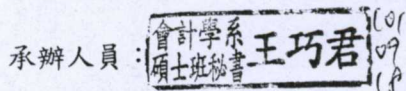 承辦人員：會計學系碩士班秘書王巧君
101
09
18